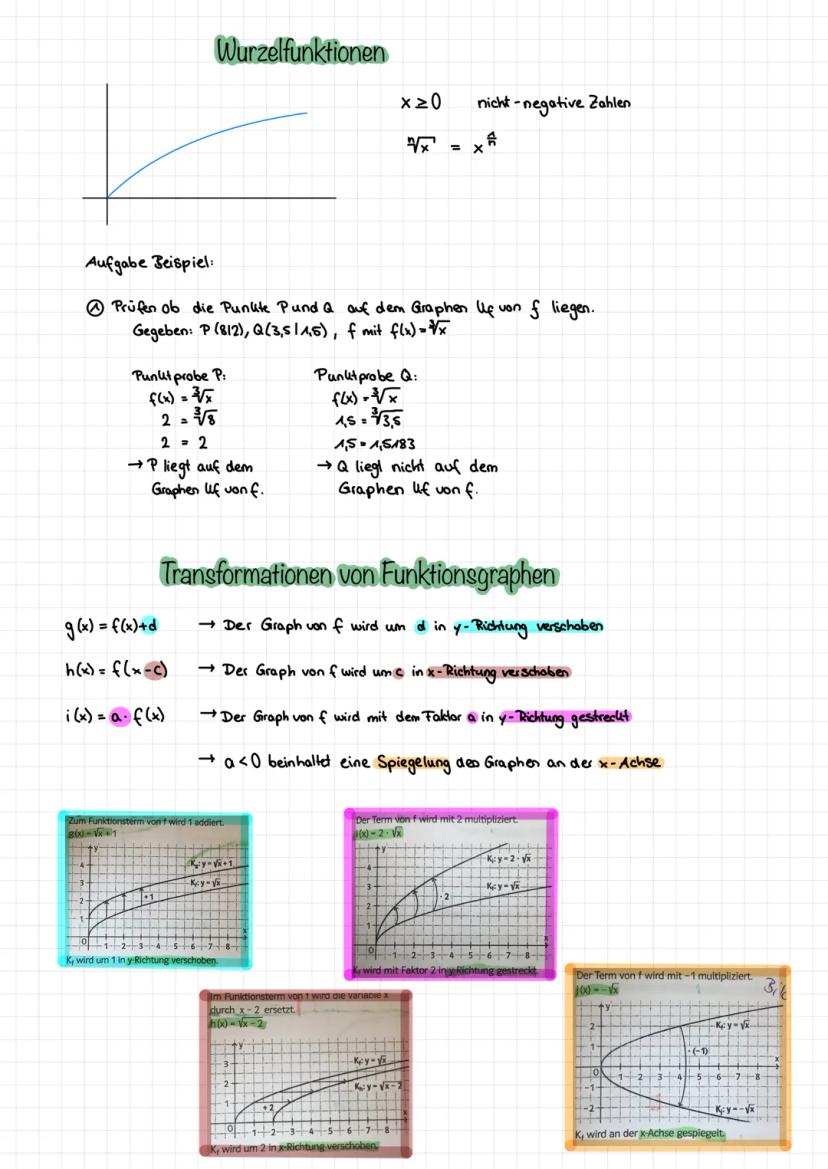 Wurzelfunktionen
x ≥ 0 nicht-negative Zahlen
ⁿ√x = x^(1/n)
Aufgabe Beispiel:
① Prüfen ob die Punkte P und Q auf dem Graphen Kf von f liegen.
Gegeben: P(8|2), Q(3,5|1,5), f mit f(x) = ³√x
Punktprobe P:
f(x) = ³√x
2 = ³√8
2 = 2
→ P liegt auf dem
Graphen Kf von f.
Punktprobe Q:
f(x) = ³√x
1,5 = ³√3,5
1,5 = 1,5183
→ Q liegt nicht auf dem
Graphen Kf von f.
Transformationen von Funktionsgraphen
g(x) = f(x)+d → Der Graph von f wird um d in y-Richtung verschoben
h(x) = f(x-c) → Der Graph von f wird um c in x-Richtung verschoben
i(x) = a·f(x) → Der Graph von f wird mit dem Faktor a in y-Richtung gestreckt
→ a<0 beinhaltet eine Spiegelung des Graphen an der x-Achse
Zum Funktionsterm von f wird 1 addiert.
g(x) = √x + 1
y
Kg: y = √x+1
Kf: y = √x
+1
4
3
2
1
0 1 2 3 4 5 6 7 8 x
Kf wird um 1 in y-Richtung verschoben.
Der Term von f wird mit 2 multipliziert.
i(x) = 2 · √x
y
Ki: y = 2 · √x
Kf: y = √x
· 2
4
3
2
1
0 1 2 3 4 5 6 7 8 x
Kf wird mit Faktor 2 in y-Richtung gestreckt.
Im Funktionsterm von f wird die Variable x
durch x - 2 ersetzt.
h(x) = √x - 2
y
Kf: y = √x
Kh: y = √x - 2
+2
3
2
1
0 1 2 3 4 5 6 7 8 x
Kf wird um 2 in x-Richtung verschoben.
Der Term von f wird mit −1 multipliziert.
j(x) = −√x
y
Kf: y = √x
· (−1)
2
1
0 1 2 3 4 5 6 7 8 x
−1
−2
Kj: y = −√x
Kf wird an der x-Achse gespiegelt.